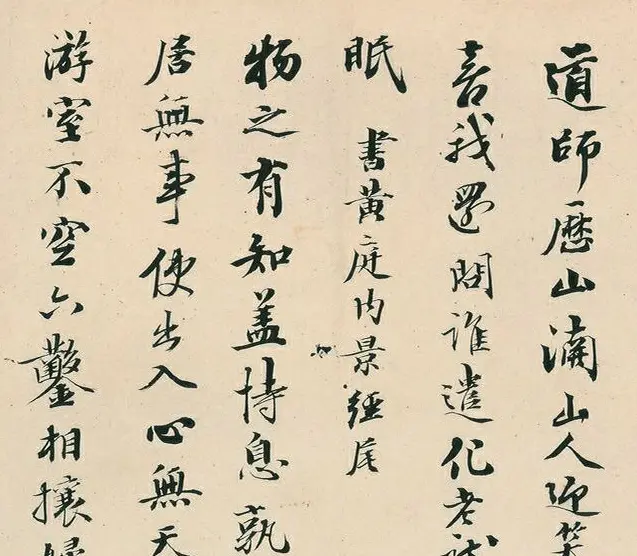 道師歷山滿山人迎
喜我還問誰遣化老
眠 書黃庭内景經尾
物之有知蓋恃息孰
居無事使出入心無天
游室不空六鑿相攘